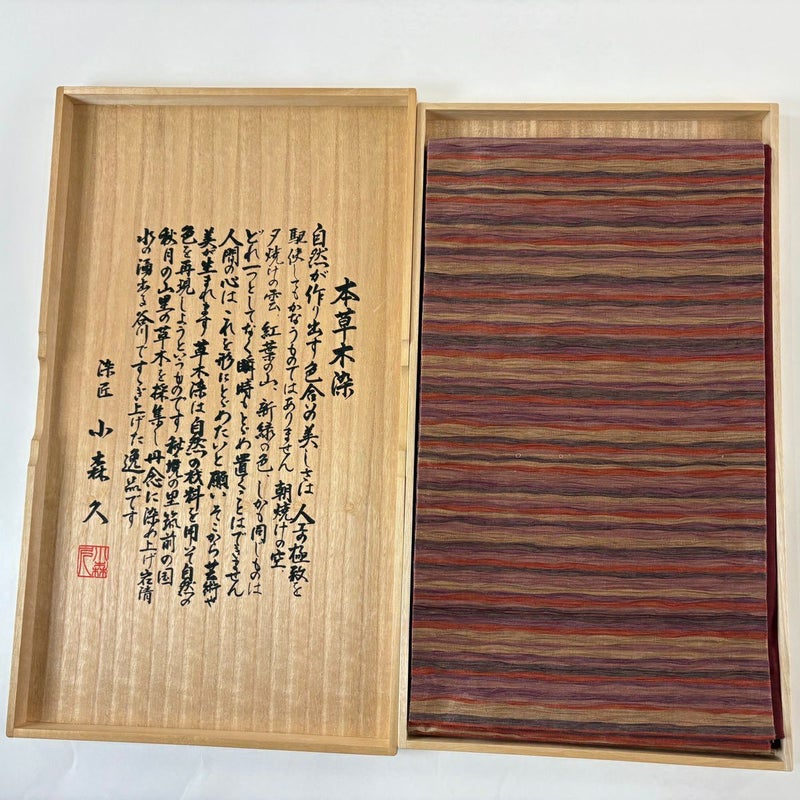 本草木染
自然が作り出す色合いの美しさは人工の極致を
駆使してもかなうものではありません 朝焼けの空、
夕焼けの雲、紅葉の山、新緑の色 しかも同じものは
どれ一つとしてなく瞬時もとどめ置くことはできません
人間の心はこれを形にとどめたいと願い そこから芸術や
美が生まれます 草木染は自然の材料を用いて自然の
色を再現しようというものです 秘境の里筑前の国
秋月の山里の草木を採集し 丹念に染め上げ岩清
水の湧出る谷川ですすぎ上げた逸品です
染匠 小森久
小森久